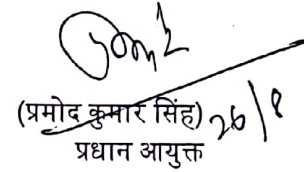 (प्रमोद कुमार सिंह) 26/8
प्रधान आयुक्त